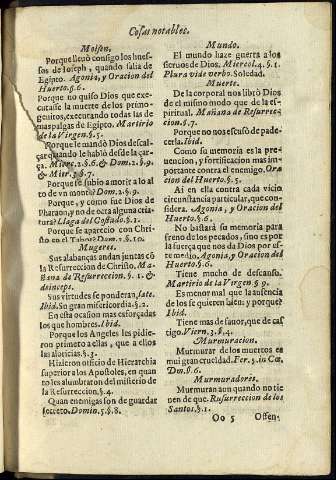 Cosas notables.
Moisen.
Porque lleuò consigo los huessos
de Ioseph, quando salia de
Egipto. Agonia, y Oracion del
Huerto. §.6.
Porque no quiso Dios que executasse
la muerte de los primogenitos,
executando todas las demas
plagas de Egipto. Martirio
de la Virgen. §.5.
Porque le mandò Dios descalçar
quando le hablò desde la çarça.
Mierc. 2. §.6. & Dom. 2. §.9.
& Mier. 3. §.7.
Porque se subio a morir a lo alto
de vn monte? Dom. 2. §.9.
Porque, y como fue Dios de
Pharaon, y no de otra alguna criatura?
Llaga del Costado. §.1.
Porque se aparecio con Christo
en el Tabor? Dom. 2. §.10.
Mugeres.
Sus alabanças andan juntas cō
la Resurreccion de Christo. Mañana
de Resurreccion. §. 1. &
deinceps.
Sus virtudes se ponderan, late.
Ibid. Su gran misericordia. §.2.
En esta ocasion mas esforçadas
que los hombres. Ibid.
Porque los Angeles les pidieron
primero a ellas, que a ellos
las albricias. §.3.
Hizieron oficio de Hierarchia
superior a los Apostoles, en quanto
les alumbraron del misterio de
la Resurreccion. §.4.
Quan enemigas son de guardar
secreto. Domin. 5. §.8.
Mundo.
El mundo haze guerra a los
sieruos de Dios. Miercol. 4. §.1.
Plura vide verbo. Soledad.
Muerte.
De la corporal nos librò Dios
de el mismo modo que de la espiritual.
Mañana de Resurreccion.
§.7.
Porque no nos escusò de padecerla.
Ibid.
Como su memoria es la preuencion,
y fortificacion mas importante
contra el enemigo. Oracion
del Huerto. §.5.
Ai en ella contra cada vicio
circunstancia particular, que considera.
Agonia, y Oracion del
Huerto. §.6.
No bastarà su memoria para
freno de los pecados, sino es por
la fuerça que nos da Dios por este
medio. Agonia, y Oracion del
Huerto. §.6.
Tiene mucho de descanso.
Martirio de la Virgen §.9.
Es menor mal que la ausencia
de los se quieren bien; y porque?
Ibid.
Tiene mas de fauor, que de castigo.
Viern. 3. §.4.
Murmuracion.
Murmurar de los muertos es
mui gran crueldad. Fer. 5. in Cœ.
Dm. §.6.
Murmuradores.
Murmuran aun quando no tienen
de que. Resurreccion de los
Santos. §.1.
Oo 5 Ofen-